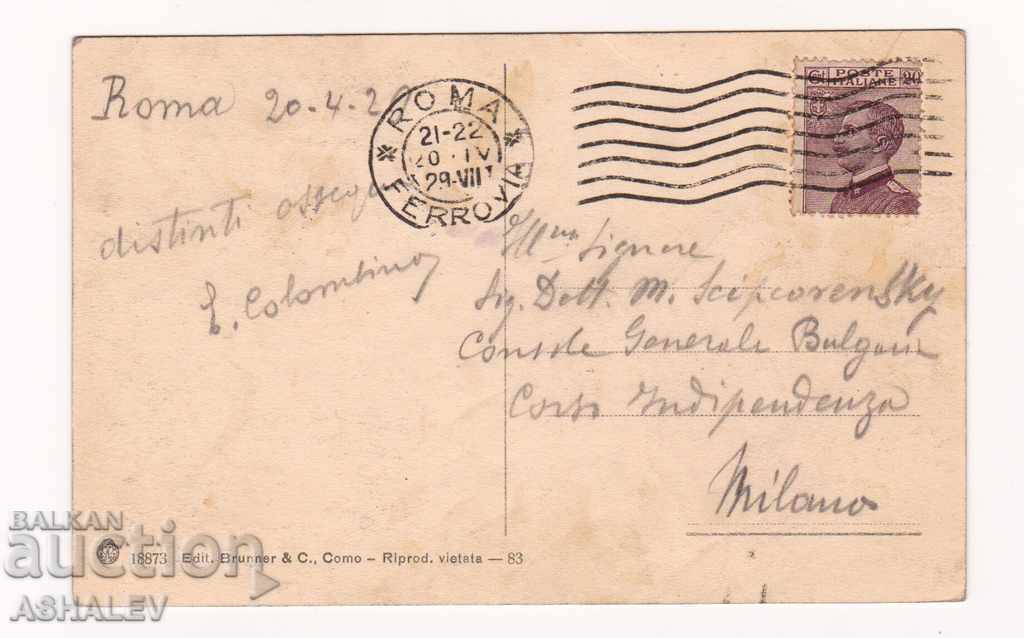 Roma 20-4-2
ROMA
FERROVIA
21-22
20·IV
29·VII
Ct POSTE ITALIANE 20
distinti ossequi
E. Colombino
Ill.mo Signore
Sig. Dott. M. Scipcorensky
Console Generale Bulgaria
Corso Indipendenza
Milano
18873 Edit. Brunner & C., Como – Riprod. vietata — 83
BALKAN
auction
ASHALEV